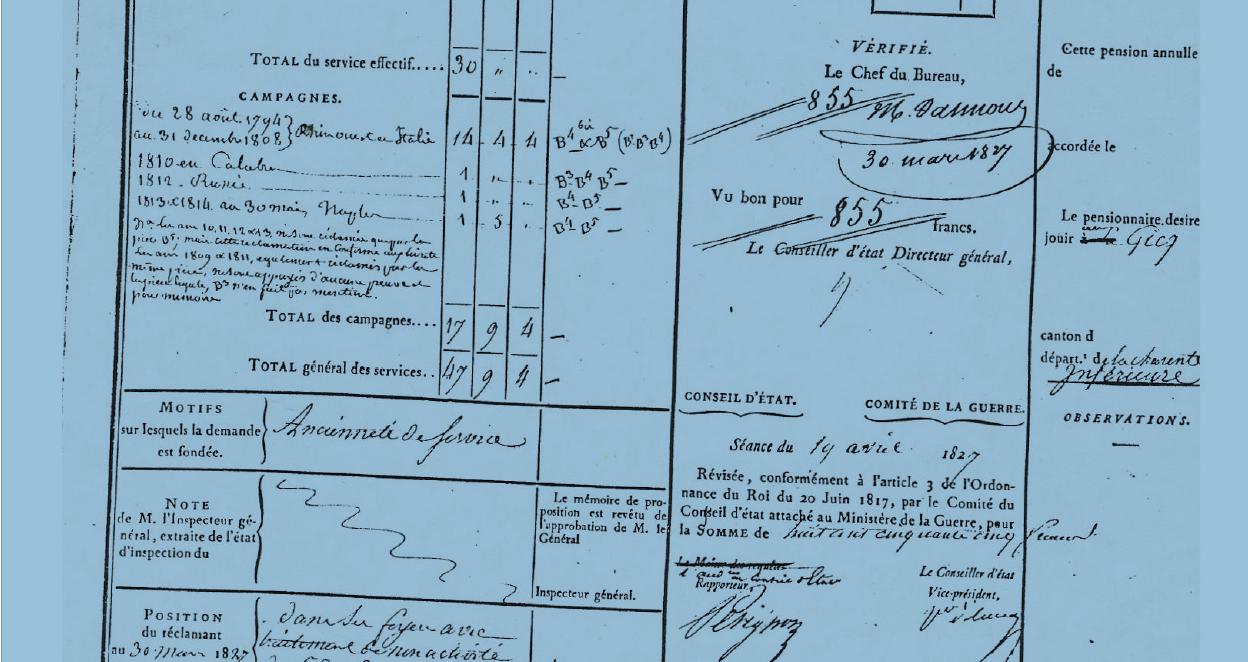 TOTAL du service effectif.... 30 " "
CAMPAGNES.
du 28 août 1794
au 31 decembre 1808 en Italie 14 4 4 B4 bis & B5 (B2 B3 B4)
1810 en Calabre 1 " " B3 B4 B5
1812 - Russie 1 " " B4 B5
1813 & 1814 au 30 mai, Naples 1 5 " B4 B5
pièce B5; mais cette réclamation
Les ans 1809 & 1811, également réclamés par la
même pièce, ne sont appuyés d'aucune preuve
B3 n'en fait pas mention.
pour mémoire
TOTAL des campagnes.... 17 9 4
TOTAL général des services.. 47 9 4
MOTIFS
sur lesquels la demande
est fondée.
Ancienneté de service
NOTE
de M. l'Inspecteur gé-
néral, extraite de l'état
d'inspection du
Le mémoire de pro-
position est revêtu de
l'approbation de M. le
Général
Inspecteur général.
POSITION
du réclamant
au 30 mars 1827
dans ses foyers avec
traitement de non activité
VÉRIFIÉ.
Le Chef du Bureau,
855
30 mars 1827
Vu bon pour
855 francs.
Le Conseiller d'état Directeur général,
CONSEIL D'ÉTAT. COMITÉ DE LA GUERRE.
Séance du 19 avril 1827
Révisée, conformément à l'article 3 de l'Ordon-
nance du Roi du 20 Juin 1817, par le Comité du
Conseil d'état attaché au Ministère de la Guerre, pour
la SOMME de huit cent cinquante cinq francs
Le Maître des requêtes
Rapporteur,
Le Conseiller d'état
Vice-président,
Cette pension annulle
de
accordée le
Le pensionnaire desire
jouir
canton d
départ.t de la Charente
Inférieure
OBSERVATIONS.